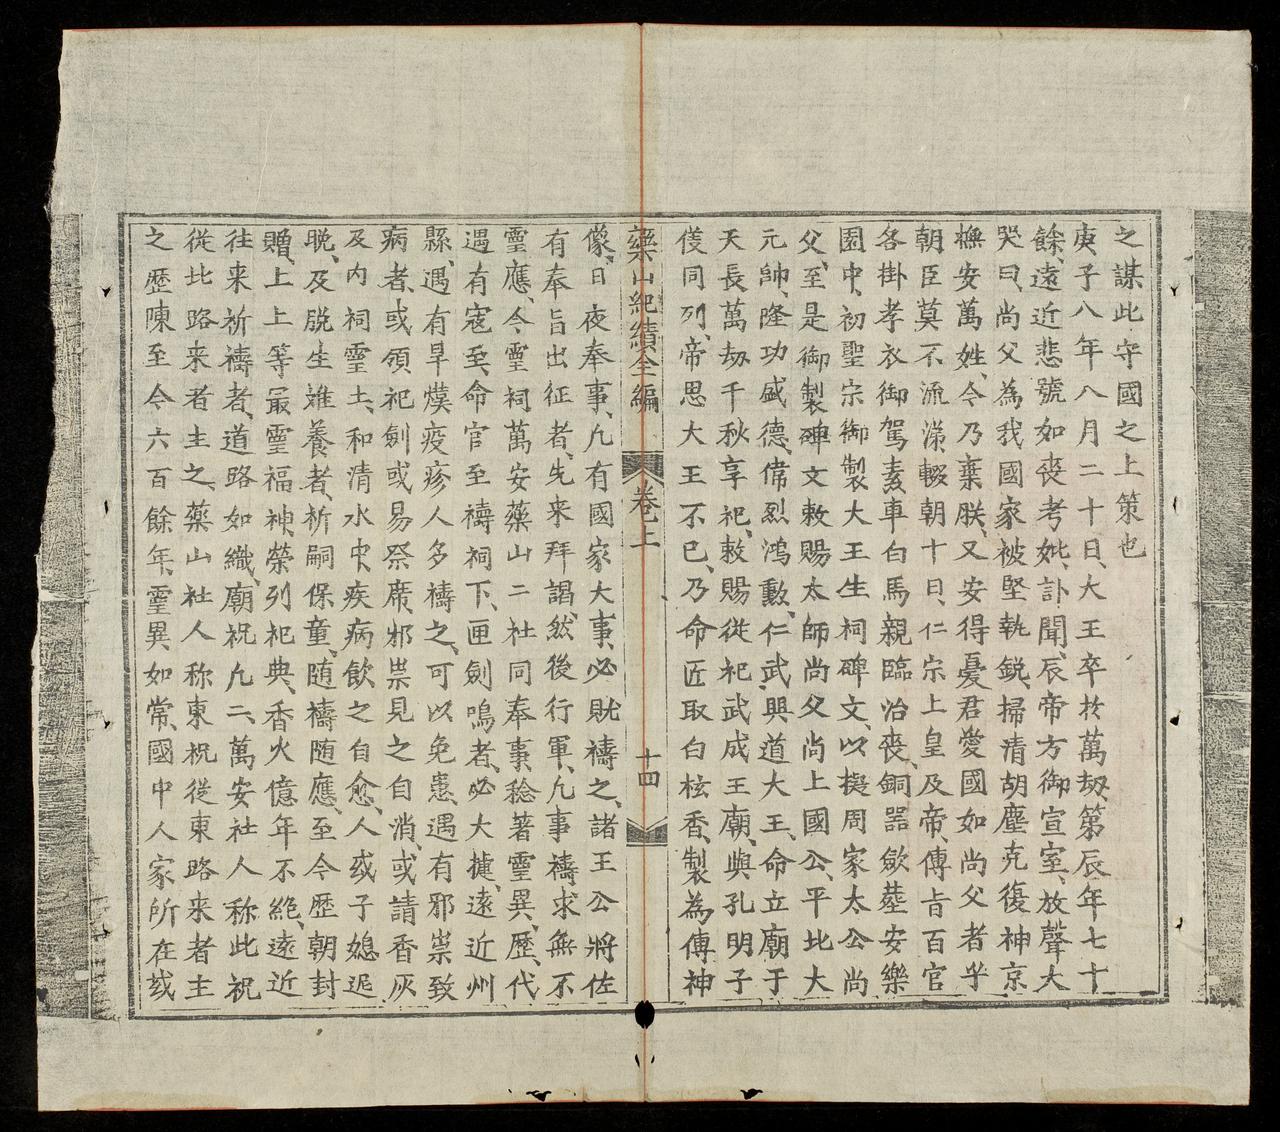 之謀此守國之上策也
庚子八年八月二十日、大王卒於萬刼、第辰年七十
餘、遠近悲號如喪考妣、訃聞、辰帝方御宣室、放聲大
哭曰、尚父為我國家被堅執銳、掃清胡塵克復神京
撫安萬姓、今乃棄朕、又安得憂君愛國如尚父者乎
朝臣莫不流涕、輟朝十日、仁宗上皇及帝、傳旨百官
各掛孝衣御駕素車白馬親臨治喪、銅器歛塟安樂
園中、初聖宗御製大王生祠碑文、以擬周家太公尚
父、至是御製碑文敕賜太師尚父尚上國公、平北大
元帥、隆功盛德、偉烈鴻勳、仁武興道大王、命立廟于
天長萬刼千秋享祀、敕賜從祀武成王廟、與孔明子
儀同列、帝思大王不已、乃命匠取白桉香、製為傳神
藥山紀績全編 卷上 十四
像、日夜奉事、凢有國家大事、必就禱之、諸王公將佐
有奉旨出征者、先来拜謁、然後行軍、凢事禱求無不
靈應、今靈祠萬安藥山二社同奉事、稔著靈異、歷代
遇有寇至、命官至禱祠下、匣劍鳴者、必大捷、遠近州
縣、遇有旱熯疫疹人多禱之、可以免患、遇有邪祟致
病者、或領祀劍或易祭席、邪祟見之自消、或請香灰
及內祠靈土、和清水中、疾病飲之自愈、人或子媳迟
晚、及脫生难養者、祈嗣保童、随禱随應、至今歷朝封
贈、上上等最靈福神、榮列祀典、香火億年不絶、遠近
往来祈禱者、道路如織、廟祝凢二、萬安社人称此祝
從北路来者主之、藥山社人称東祝從東路来者主
之歷陳至今六百餘年、靈異如常、國中人家所在或